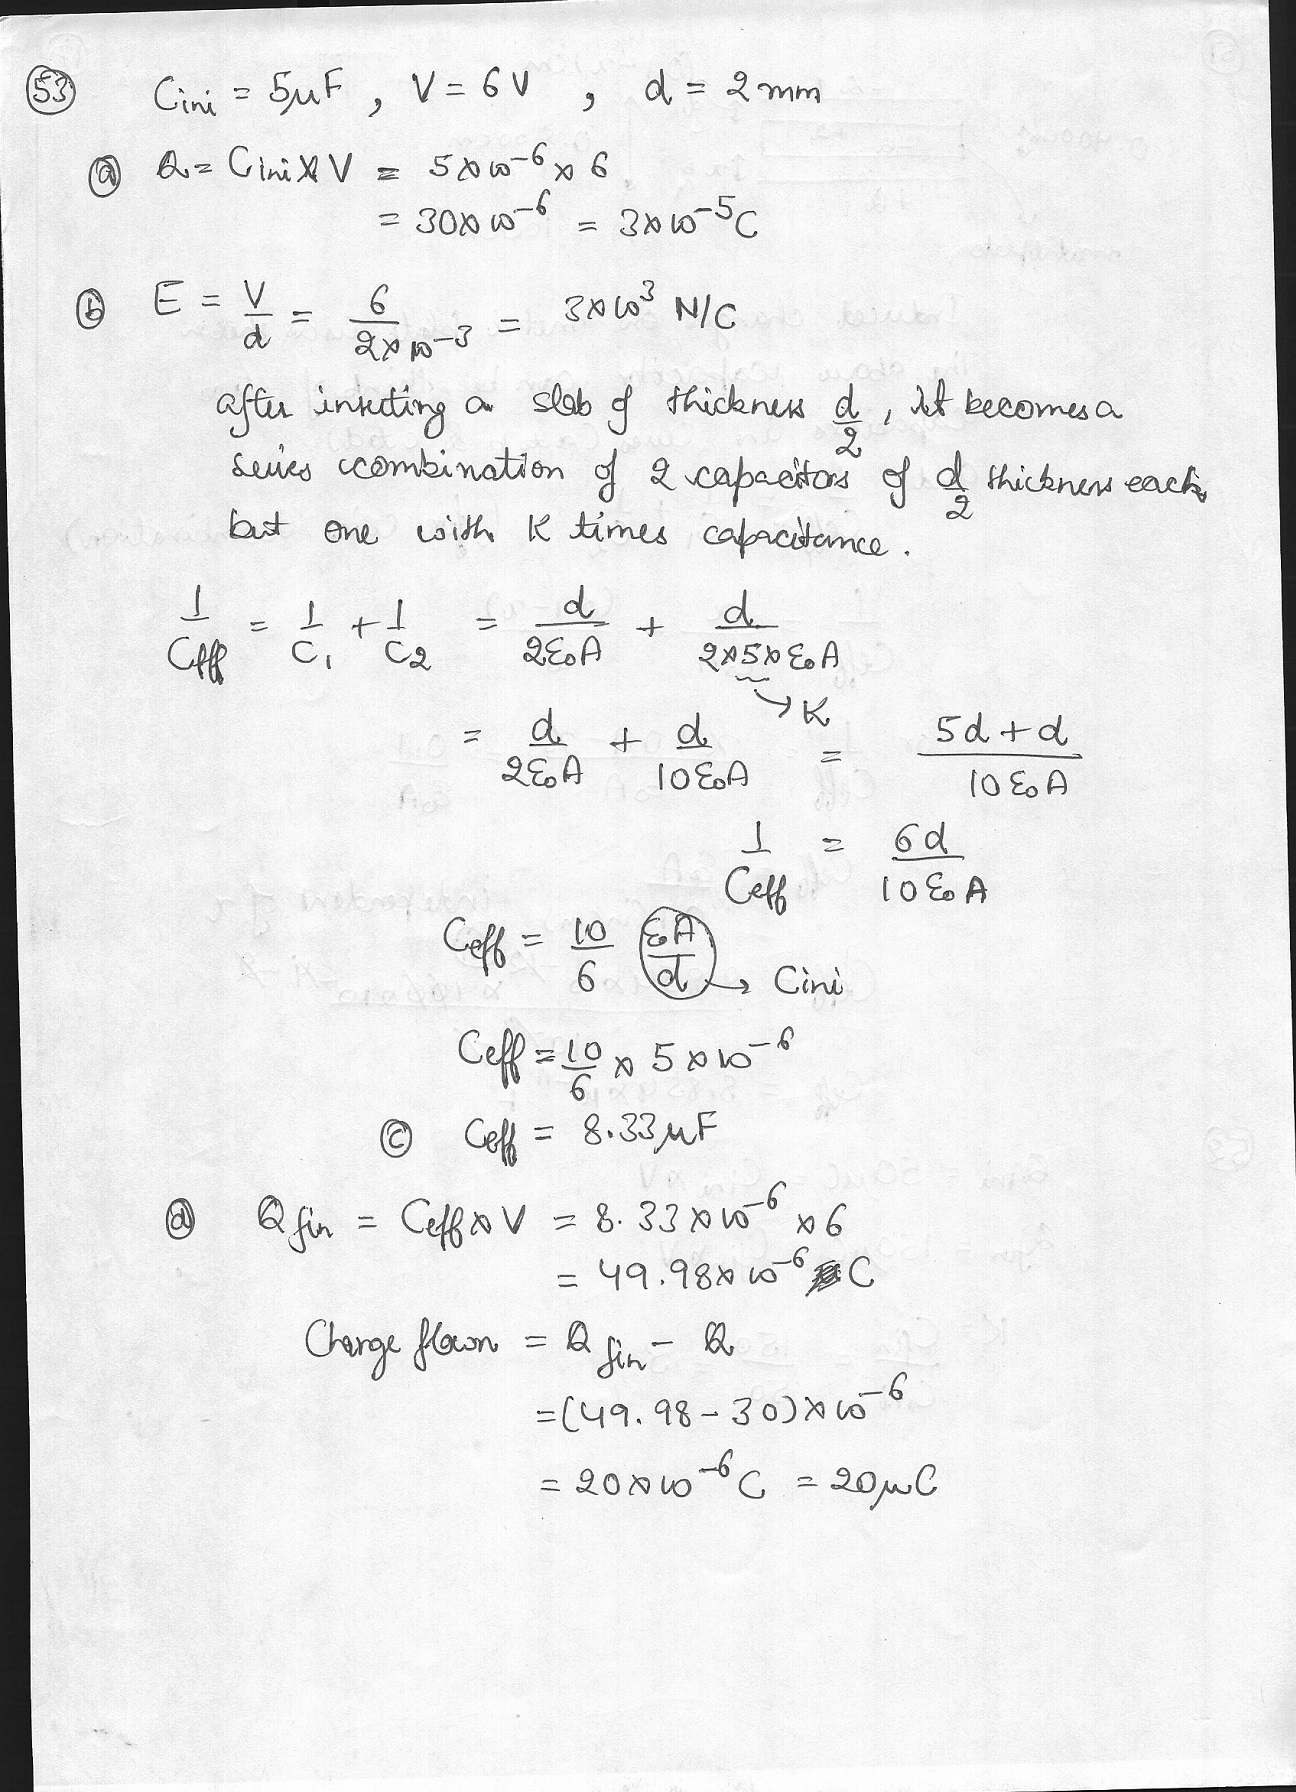 53 Cini = 5μF , V = 6V , d = 2mm
a Q = Cini × V = 5×10⁻⁶ × 6
= 30×10⁻⁶ = 3×10⁻⁵C
b E = V/d = 6/(2×10⁻³) = 3×10³ N/C
after inserting a slab of thickness d/2, it becomes a
series combination of 2 capacitors of d/2 thickness each,
but one with K times capacitance.
1/Ceff = 1/C₁ + 1/C₂ = d/(2ε₀A) + d/(2×5×ε₀A)
→ K
= d/(2ε₀A) + d/(10ε₀A) = (5d + d)/(10ε₀A)
1/Ceff = 6d/(10ε₀A)
Ceff = 10/6 (ε₀A/d) → Cini
Ceff = 10/6 × 5×10⁻⁶
c Ceff = 8.33μF
d Qfin = Ceff × V = 8.33×10⁻⁶ × 6
= 49.98×10⁻⁶ C
Charge flown = Qfin - Q
= (49.98 - 30)×10⁻⁶
= 20×10⁻⁶ C = 20μC